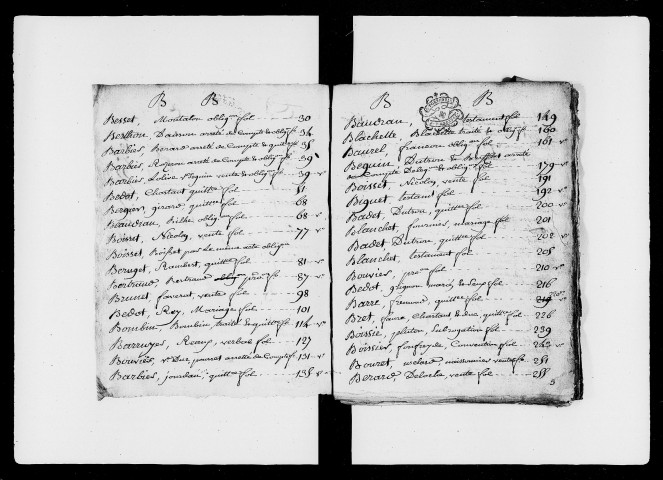 B B
Besset, Montalon oblig.on fol 30
Berthon, Dadson areté de Compte et oblig. fol 34
Barbier, Berard areté de Compte et quitt.ce fol 35
Barbier, Rozeron areté de Compte et oblig. fol 39
Barbier, Lolive, Seguin vente et oblig. fol 39 v°
Bedot, Chastant quitt.ce fol 51
Bergier, girard quitt.ce fol 68
Blaudrau, Billhe oblig.on fol 68 v°
Boisset, Nicolas, vente fol 77 v°
Boisset, Boisset par le meme acte oblig.on
Beruget, Rambert, quitt.ce fol 81 v°
Bertrand Bertrand pro.on fol 87 v°
Brunet, faveret, vente fol 98
Bedot, Rey, Mariage fol 101
Bombin, Bombin, traité et quitt.ce fol 114 v°
Barruyer, Reang, verbal fol 127
Bouvier, v.e Dur, pouret areté de Compte fol 131 v°
Barbier, jourdan, quitt.ce fol 135 v°
B B
Baudran, testament fol 149
Blachette, Blachette traité et oblig. fol 160
Baurel, francou oblig.on fol 161 v°
Beguin, Dutrieu et areté
de Compte et oblig.on fol 179 v°
Boisset, Nicolas, vente fol 191
Biguet, testam.t fol 192 v°
Badet, Dutrou, quitt.ce fol 200 v°
Blanchet, fournier, mariage fol 201
Badet Dutrou, quitt.ce fol 202 v°
Blanchet, testament fol 205
Bouvier, pro.on fol 210 v°
Bedot, gagnon, mariage fol 216
Barre, fremond, quitt.ce fol
Bret, faure, Chastant quitt.ce fol 226
Boissie, platon, subrogation fol 239
Boissier, fonfreyde, Convention fol 243 v°
Bouret, vente fol 251
Berard, Delorte, vente fol 255